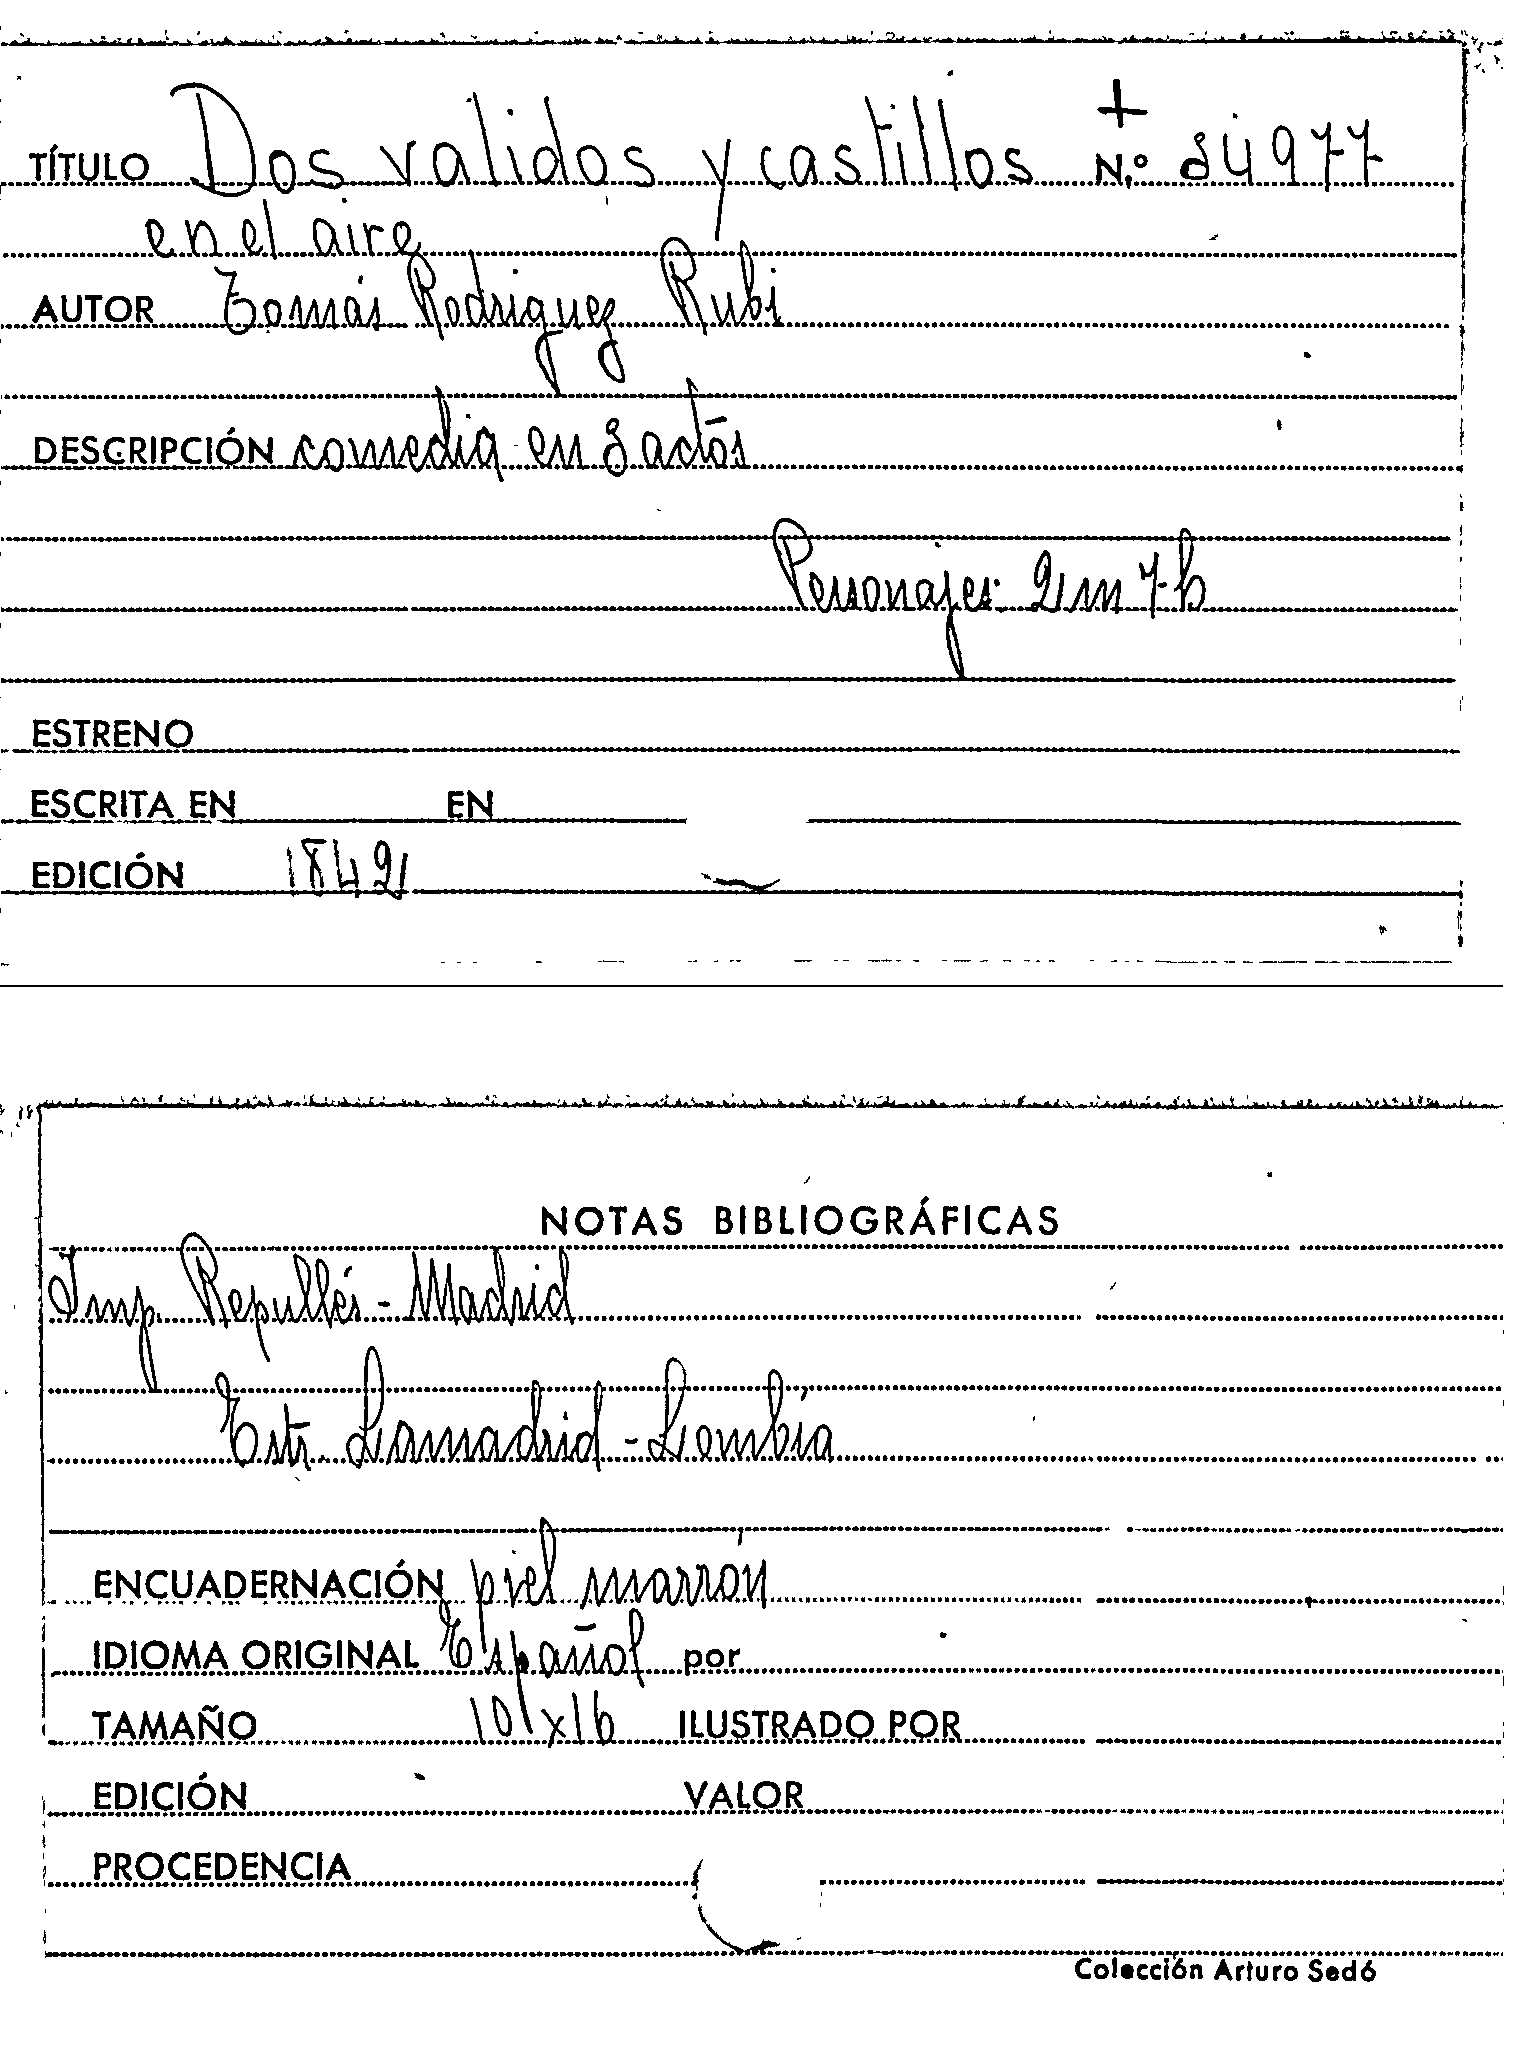 +
TÍTULO Dos validos y castillos N.º 84977
en el aire
AUTOR Tomás Rodriguez Rubi
DESCRIPCIÓN comedia en 3 actos
Personajes: 2 m 7 h
ESTRENO
ESCRITA EN EN
EDICIÓN 1842
NOTAS BIBLIOGRÁFICAS
Imp. Repullés - Madrid
Estr. Lamadrid - Lombía
ENCUADERNACIÓN piel marrón
IDIOMA ORIGINAL Español por
TAMAÑO 10 x 16 ILUSTRADO POR
EDICIÓN VALOR
PROCEDENCIA
Colección Arturo Sedó